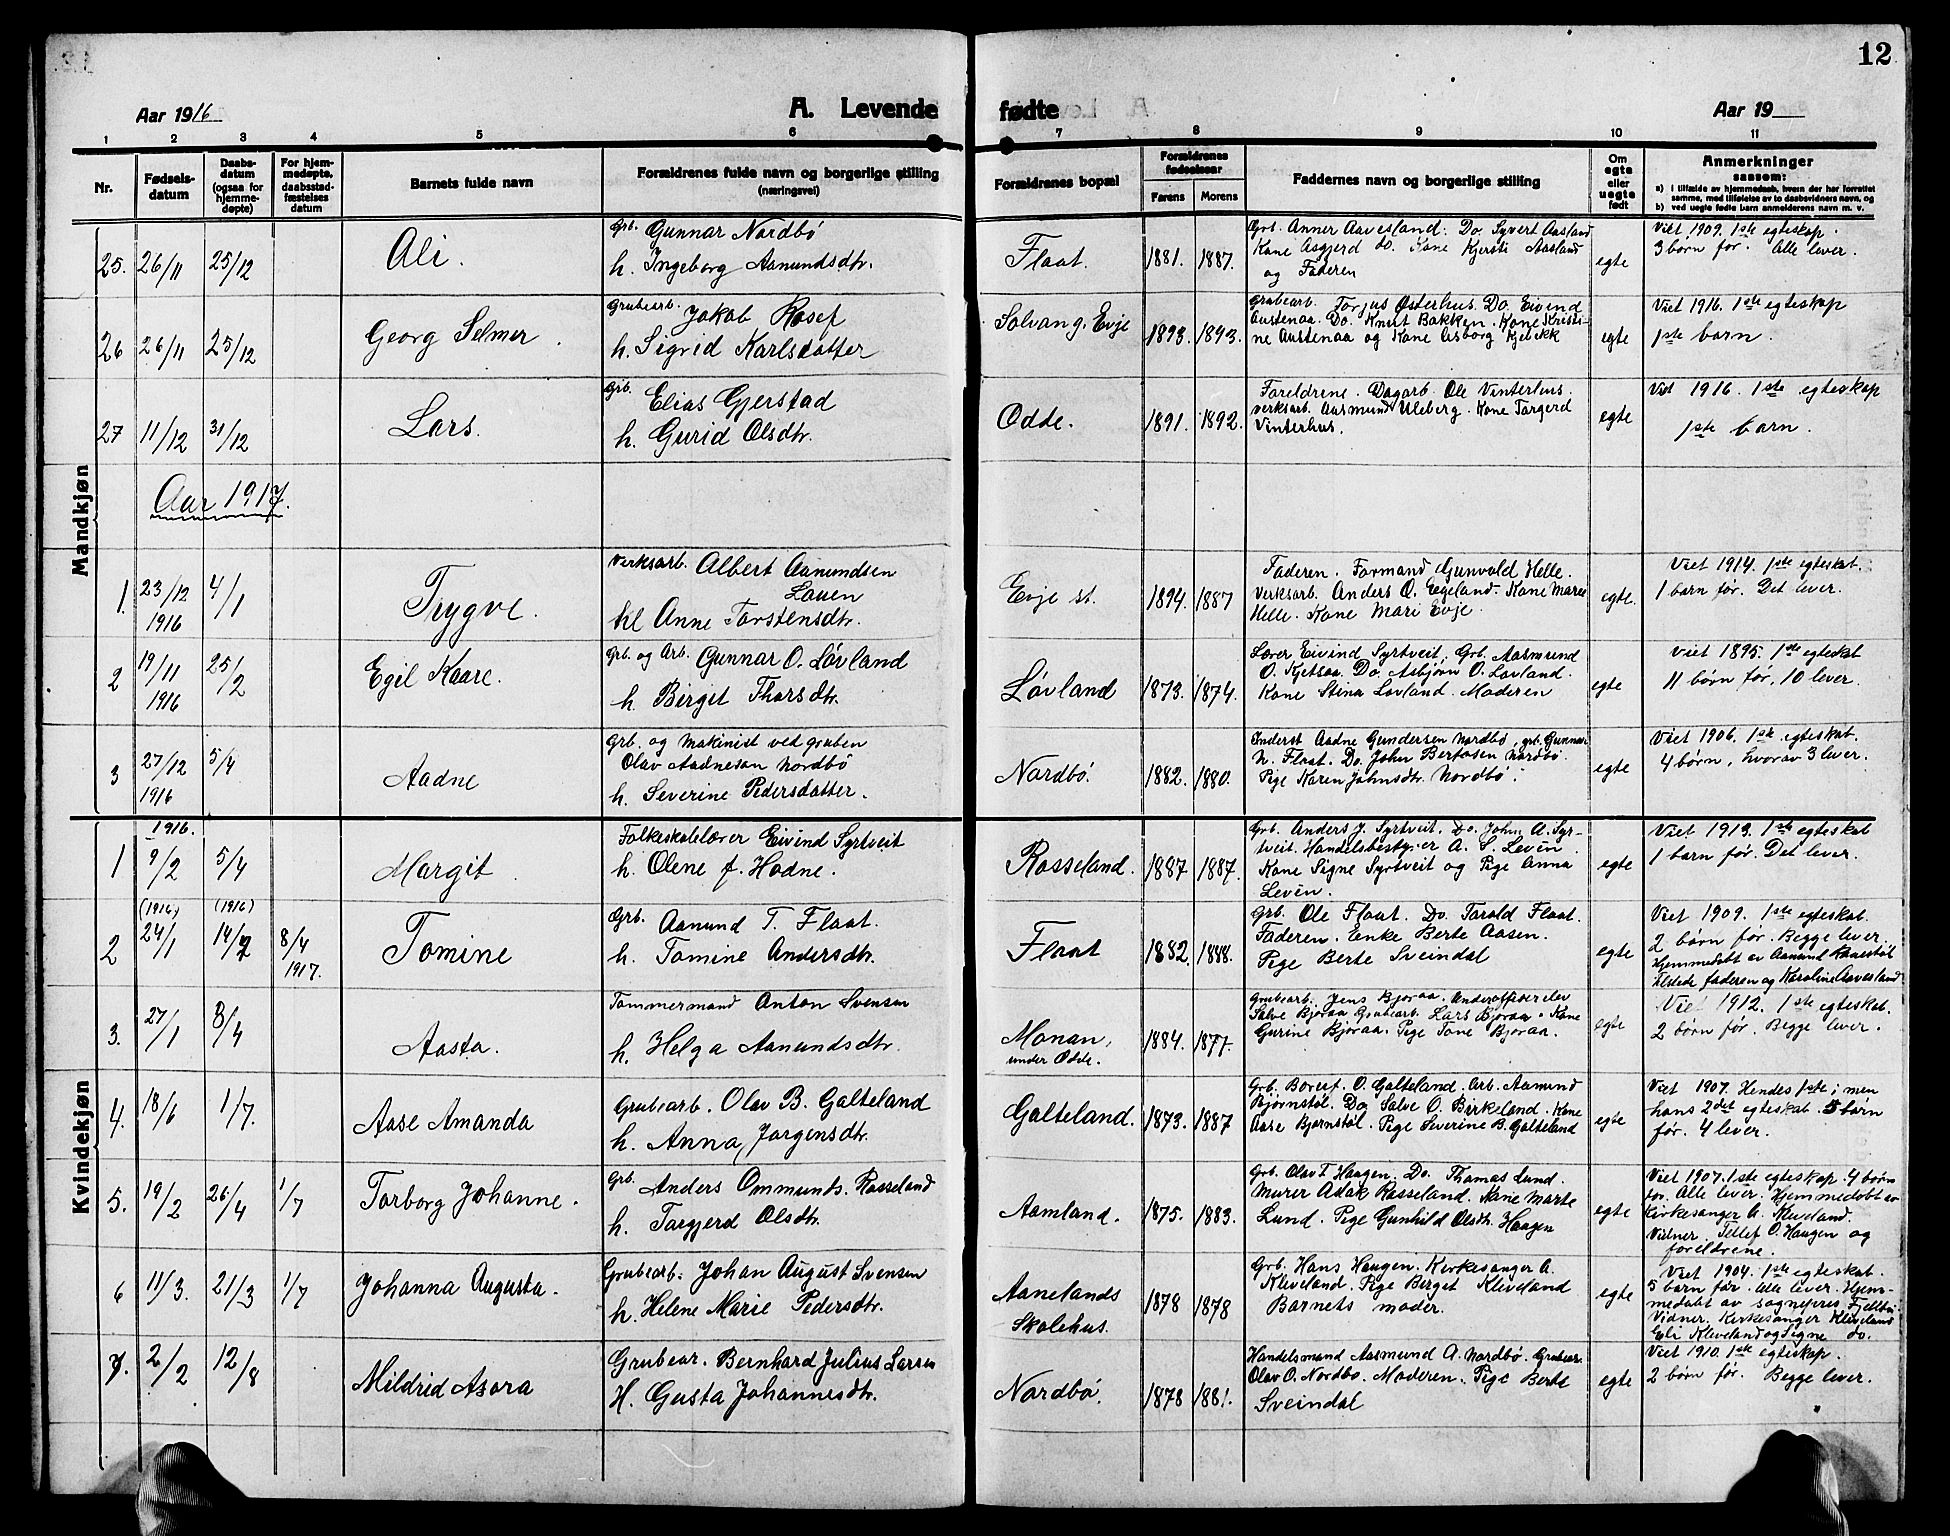 12
Aar 1916 A. Levende fødte Aar 19
1 2 3 4 5 6 7 8 9 10 11
Nr. Fødsels-datum Daabs-datum (ogsaa for hjemme-døpte) For hjem-medøpte, daabsstad-fæstelses datum Barnets fulde navn Forældrenes fulde navn og borgerlige stilling (næringsvei) Forældrenes bopæl Forældrenes fødselsaar Farens Morens Faddernes navn og borgerlige stilling Om egte eller uegte født Anmerkninger saasom:
a) i tilfælde av hjemmedaab, hvem der har forrettet samme, med tilføielse av to daabsvidners navn, og
b) ved uegte fødte barn anmelderens navn m. v.
Mandkjøn
25. 26/11 25/12 Ali. Grb. Gunnar Nordbø
h. Ingeborg Aanundsdtr. Flaat. 1881. 1887. Grb. Anner Aavesland. Do. Syvert Aasland
Kone Asgjerd do. Kone Kjersti Aasland
og Faderen egte Viet 1909. 1ste egteskap.
3 børn før. Alle lever.
26 26/11 25/12 Georg Selmer. Grubearb. Jakob Rosef
h. Sigrid Karlsdatter Solvang, Evje 1893. 1893. Grubearb. Torjus Østerhus. Do. Eivind
Austenaa. Do. Knut Bakken. Kone Kristi-
ne Austenaa og Kone Asborg Kjebekk egte Viet 1916. 1ste egteskap
1ste barn.
27 11/12 31/12 Lars. Grb. Elias Gjerstad
h. Gurid Olsdtr. Odde. 1891. 1892. Foreldrene. Dagarb. Ole Vinterhus.
Verksarb. Aasmund Uleberg. Kone Targerd
Vinterhus. egte Viet 1916. 1ste egteskap
1ste barn.
Aar 1917.
1. 23/12 1916 4/1 Trygve. Verksarb. Albert Aanundsen
Lauen
kl Anne Torstensdtr. Evje st. 1894. 1887 Faderen. Formand Gunvald Helle.
Verksarb. Anders O. Egeland. Kone Marie
Helle. Kone Mari Evje. egte. Viet 1914. 1ste egteskab.
1 barn før. Det lever.
2 19/11 1916 25/2 Egil Kaare. Grb. og Arb. Gunnar O. Løvland
h. Birgit Tharsdtr. Løvland 1873. 1874. Lærer Eivind Syrtveit, Grb. Aasmund
O. Kjetsaa. Do. Asbjørn O. Løvland.
Kone Stina Løvland. Moderen egte Viet 1895. 1ste egteskab
11 børn før, 10 lever.
3 27/12 1916 5/4 Aadne Grb. og makinist ved gruben
Olav Aadneson Nordbø
h. Severine Pedersdatter. Nordbø. 1882. 1880. Inderst Aadne Gundersen Nordbø, grb. Gunnar
N. Flaat. Do. John Bertosen Nordbø.
Pige Karen Johnsdtr. Nordbø. egte Viet 1906. 1ste egteskab.
4 børn, hvorav 3 lever.
Kvindekjøn
1 1916. 9/2 5/4 Margit. Folkeskolelærer Eivind Syrtveit
h. Olene f. Hodne. Rosseland. 1887 1887. Grb. Anders J. Syrtveit. Do. John A. Syr-
tveit. Handelsbestyrer A. S. Levën.
Kone Signe Syrtveit og Pige Anna
Levën. egte Viet 1913. 1ste egteskab
1 barn før. Det lever.
2 (1916) 24/1 (1916) 14/2 8/4 1917. Tomine Grb. Aanund T. Flaat.
h. Tomine Andersdtr. Flaat 1882. 1888. Grb. Ole Flaat. Do. Tarald Flaat.
Faderen. Enke Berte Aasen.
Pige Berte Sveindal egte Viet 1909. 1ste egteskab.
2 børn før. Begge lever.
Hjemmedøbt av Aanund Kaanestøl
tilstede faderen og Karoline Aavesland
3. 27/1 8/4 Aasta. Tømmermand Anton Svensen
h. Helga Aanundsdtr. Monan, under Odde. 1884. 1877. Grubearb. Jens Bjoraa. Underofficerelev
Salve Bjoraa. Grubearb. Lars Bjoraa. Kone
Gurine Bjoraa. Pige Tone Bjoraa. egte Viet 1912. 1ste egteskab.
2 børn før. Begge lever.
4. 18/6 1/7. Aase Amanda Grubearb. Olav B. Galteland
h. Anna Jørgensdtr. Galteland. 1873. 1887 Grb. Boresf. O. Galteland. Arb. Aamund
Bjørnstøl. Do Salve O. Birkeland. Kone
Aase Bjørnstøl. Pige Severine B. Galteland egte Viet 1907. Hendes 1ste; men
hans 2det egteskab. 5 børn
før. 4 lever.
5. 19/2 26/4 1/7 Torborg Johanne. Grb. Anders Ommunds. Rosseland
h. Targjerd Olsdtr. Aamland. 1875. 1883. Grb. Olav T Haugen, Do. Thomas Lund.
Murer Adak Rosseland. Kone Marte
Lund. Pige Gunhild Olsdtr. Haugen egte Viet 1907. 1ste egteskap. 4 børn
før. Alle lever. Hjemmedøbt av
Kirkesanger A. Kleveland.
Vidner. Tellef O. Haugen og
foreldrene.
6 11/3. 21/3 1/7 Johanna Augusta. Grubearb. Johan August Svensen
h. Helene Marie Pedersdtr. Aanelands Skolehus. 1878 1878 Grb. Hans Haugen. Kirkesanger A.
Kleveland. Pige Berget Kleveland
Barnets moder. egte Viet 1904. 1ste egteskab.
5 barn før. Alle lever. Hjem-
medøbt av sogneprest Fjelltvi
Vidner. Kirkesanger Kleveland
Eli Kleveland og Signe do.
7. 2/2 12/8 Mildrid Asora Grubear. Bernhard Julius Larsen
H. Gusta Johannesdtr. Nordbø. 1878 1881. Handelsmand Aasmund A. Nordbø. Grubear.
Olav O. Nordbø. Moderen. Pige Berte
Sveindal egte Viet 1910. 1ste egteskap.
2 børn før. Begge lever.